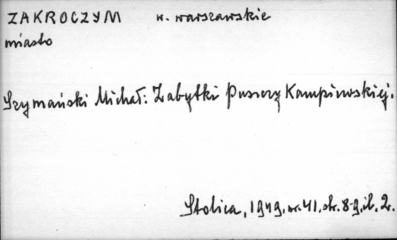 ZAKROCZYM w. warszawskie
miasto
Szymański Michał: Zabytki Puszczy Kampinowskiej.
Stolica, 1949, nr. 41, str. 8-9, il. 2.